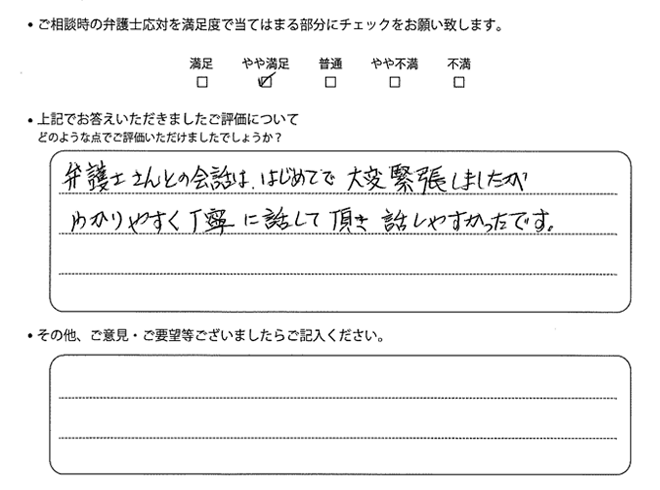 ・ご相談時の弁護士応対を満足度で当てはまる部分にチェックをお願い致します。
満足 やや満足 普通 やや不満 不満
□ ☑ □ □ □
・上記でお答えいただきましたご評価について
どのような点でご評価いただけましたでしょうか？
弁護士さんとの会話は、はじめてで 大変緊張しましたが
わかりやすく丁寧に話して頂き 話しやすかったです。
・その他、ご意見・ご要望等ございましたらご記入ください。